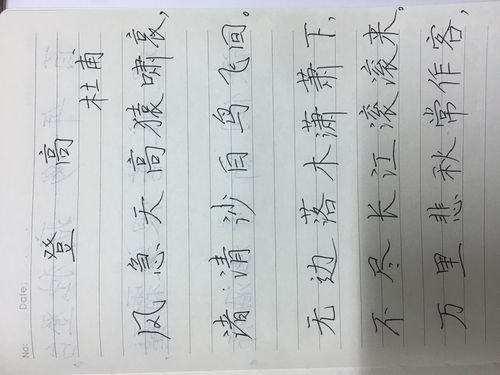 No: Date:
登高
杜甫
风急天高猿啸哀,
渚清沙白鸟飞回。
无边落木萧萧下,
不尽长江滚滚来。
万里悲秋常作客,